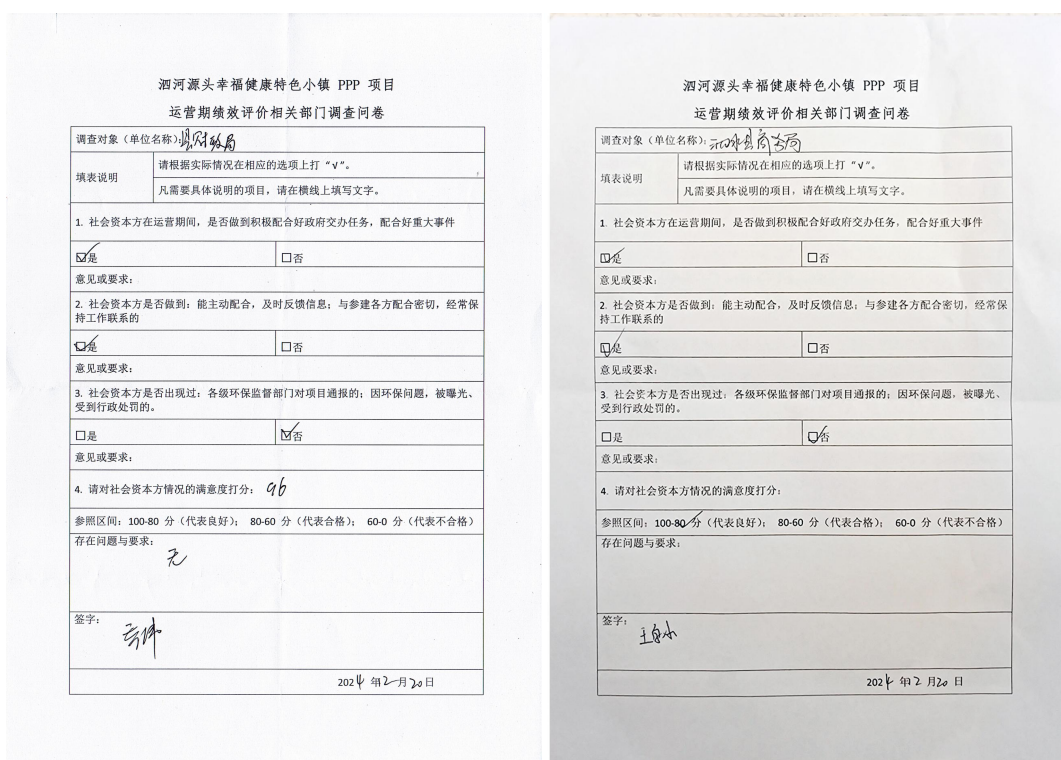 泗河源头幸福健康特色小镇 PPP 项目
运营期绩效评价相关部门调查问卷
调查对象（单位名称）：县财政局
填表说明
请根据实际情况在相应的选项上打“√”。
凡需要具体说明的项目，请在横线上填写文字。
1. 社会资本方在运营期间，是否做到积极配合好政府交办任务，配合好重大事件
☑是
□否
意见或要求：
2. 社会资本方是否做到：能主动配合，及时反馈信息；与参建各方配合密切，经常保
持工作联系的
☑是
□否
意见或要求：
3. 社会资本方是否出现过：各级环保监督部门对项目通报的；因环保问题，被曝光、
受到行政处罚的。
□是
☑否
意见或要求：
4. 请对社会资本方情况的满意度打分： 96
参照区间：100-80 分（代表良好）； 80-60 分（代表合格）； 60-0 分（代表不合格）
存在问题与要求：
无
签字：
2024 年2月20日
泗河源头幸福健康特色小镇 PPP 项目
运营期绩效评价相关部门调查问卷
调查对象（单位名称）：泗水县商务局
填表说明
请根据实际情况在相应的选项上打“√”。
凡需要具体说明的项目，请在横线上填写文字。
1. 社会资本方在运营期间，是否做到积极配合好政府交办任务，配合好重大事件
☑是
□否
意见或要求：
2. 社会资本方是否做到：能主动配合，及时反馈信息；与参建各方配合密切，经常保
持工作联系的
☑是
□否
意见或要求：
3. 社会资本方是否出现过：各级环保监督部门对项目通报的；因环保问题，被曝光、
受到行政处罚的。
□是
☑否
意见或要求：
4. 请对社会资本方情况的满意度打分：
参照区间：100-80 分（代表良好）； 80-60 分（代表合格）； 60-0 分（代表不合格）
存在问题与要求：
签字：
2024 年2月20日